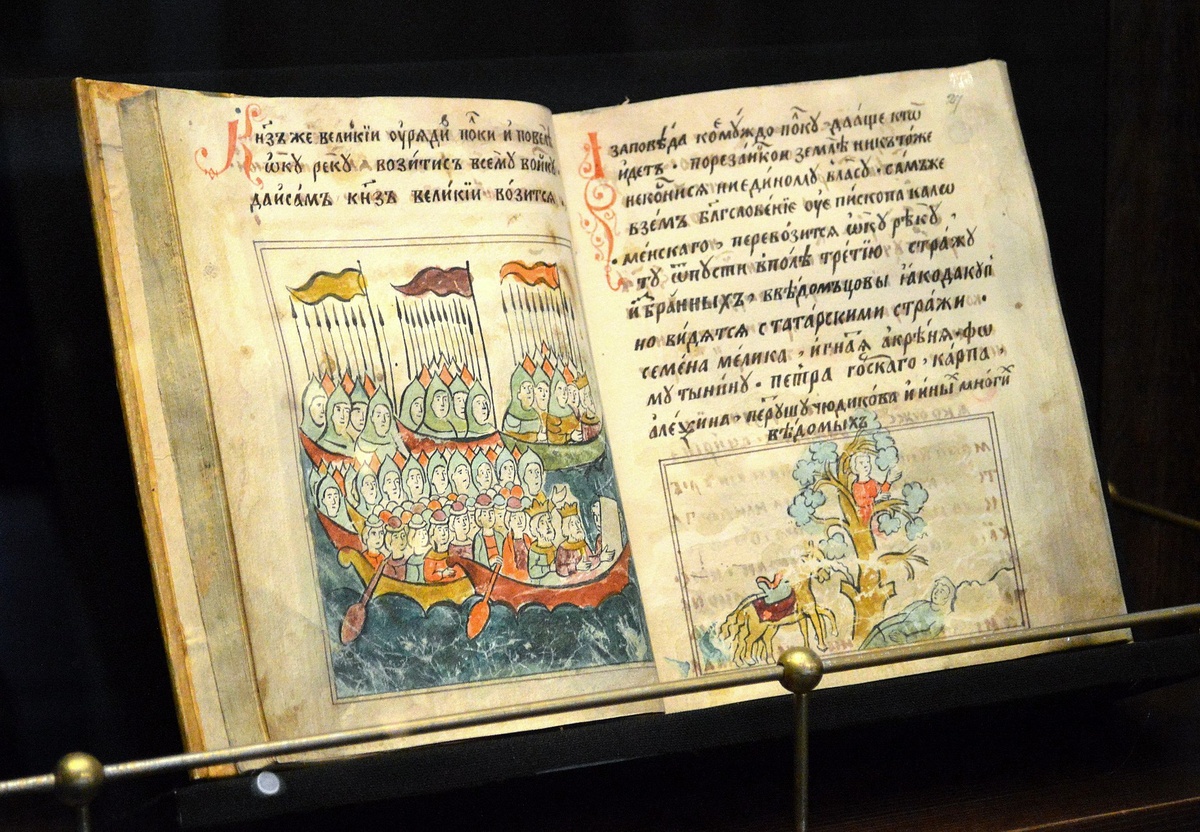 Кн҃зъже великїи ѹ҆ряди по́ки и҆ повелѣ
ѡ҆ку реку возитисъ всемꙋ войнꙋ.
даи́самъ кн҃зъ великїй во́зится.
27
заповѣда комꙋждо по́кꙋ дааще ктѡ
и҆детъ. порезанскои землѣ никътоже
некоснися ниединоллꙋ власꙋ. самъже
вземъ бл҃гсловенїе ѹ҆е пископа калѡ
менскаго, перевозится ѡ҆кꙋ рѣкꙋ,
тꙋ ѿпусти вполе третїю стражꙋ
и҆збранныхъ, ввѣдомъцовы ꙗ҆кодакуп
но видятся статарскими стражи.
семена мелика, и҆гнаⷮя акрѣня. фѡ
мꙋ тынинꙋ. петра го́скаго, карпа,
але́ѯина. пе́рꙋшꙋ чюдикова и҆ ины̑ многи̑
вѣдомыхъ